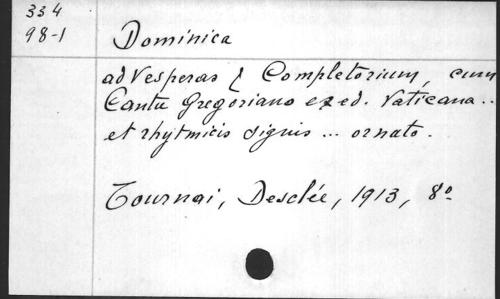 334
98-1
Dominica
ad Vesperas & Completorium, cum
Cantu Gregoriano ex ed. Vaticana ..
et rhytmicis signis ... ornato.
Tournai, Desclée, 1913, 8º